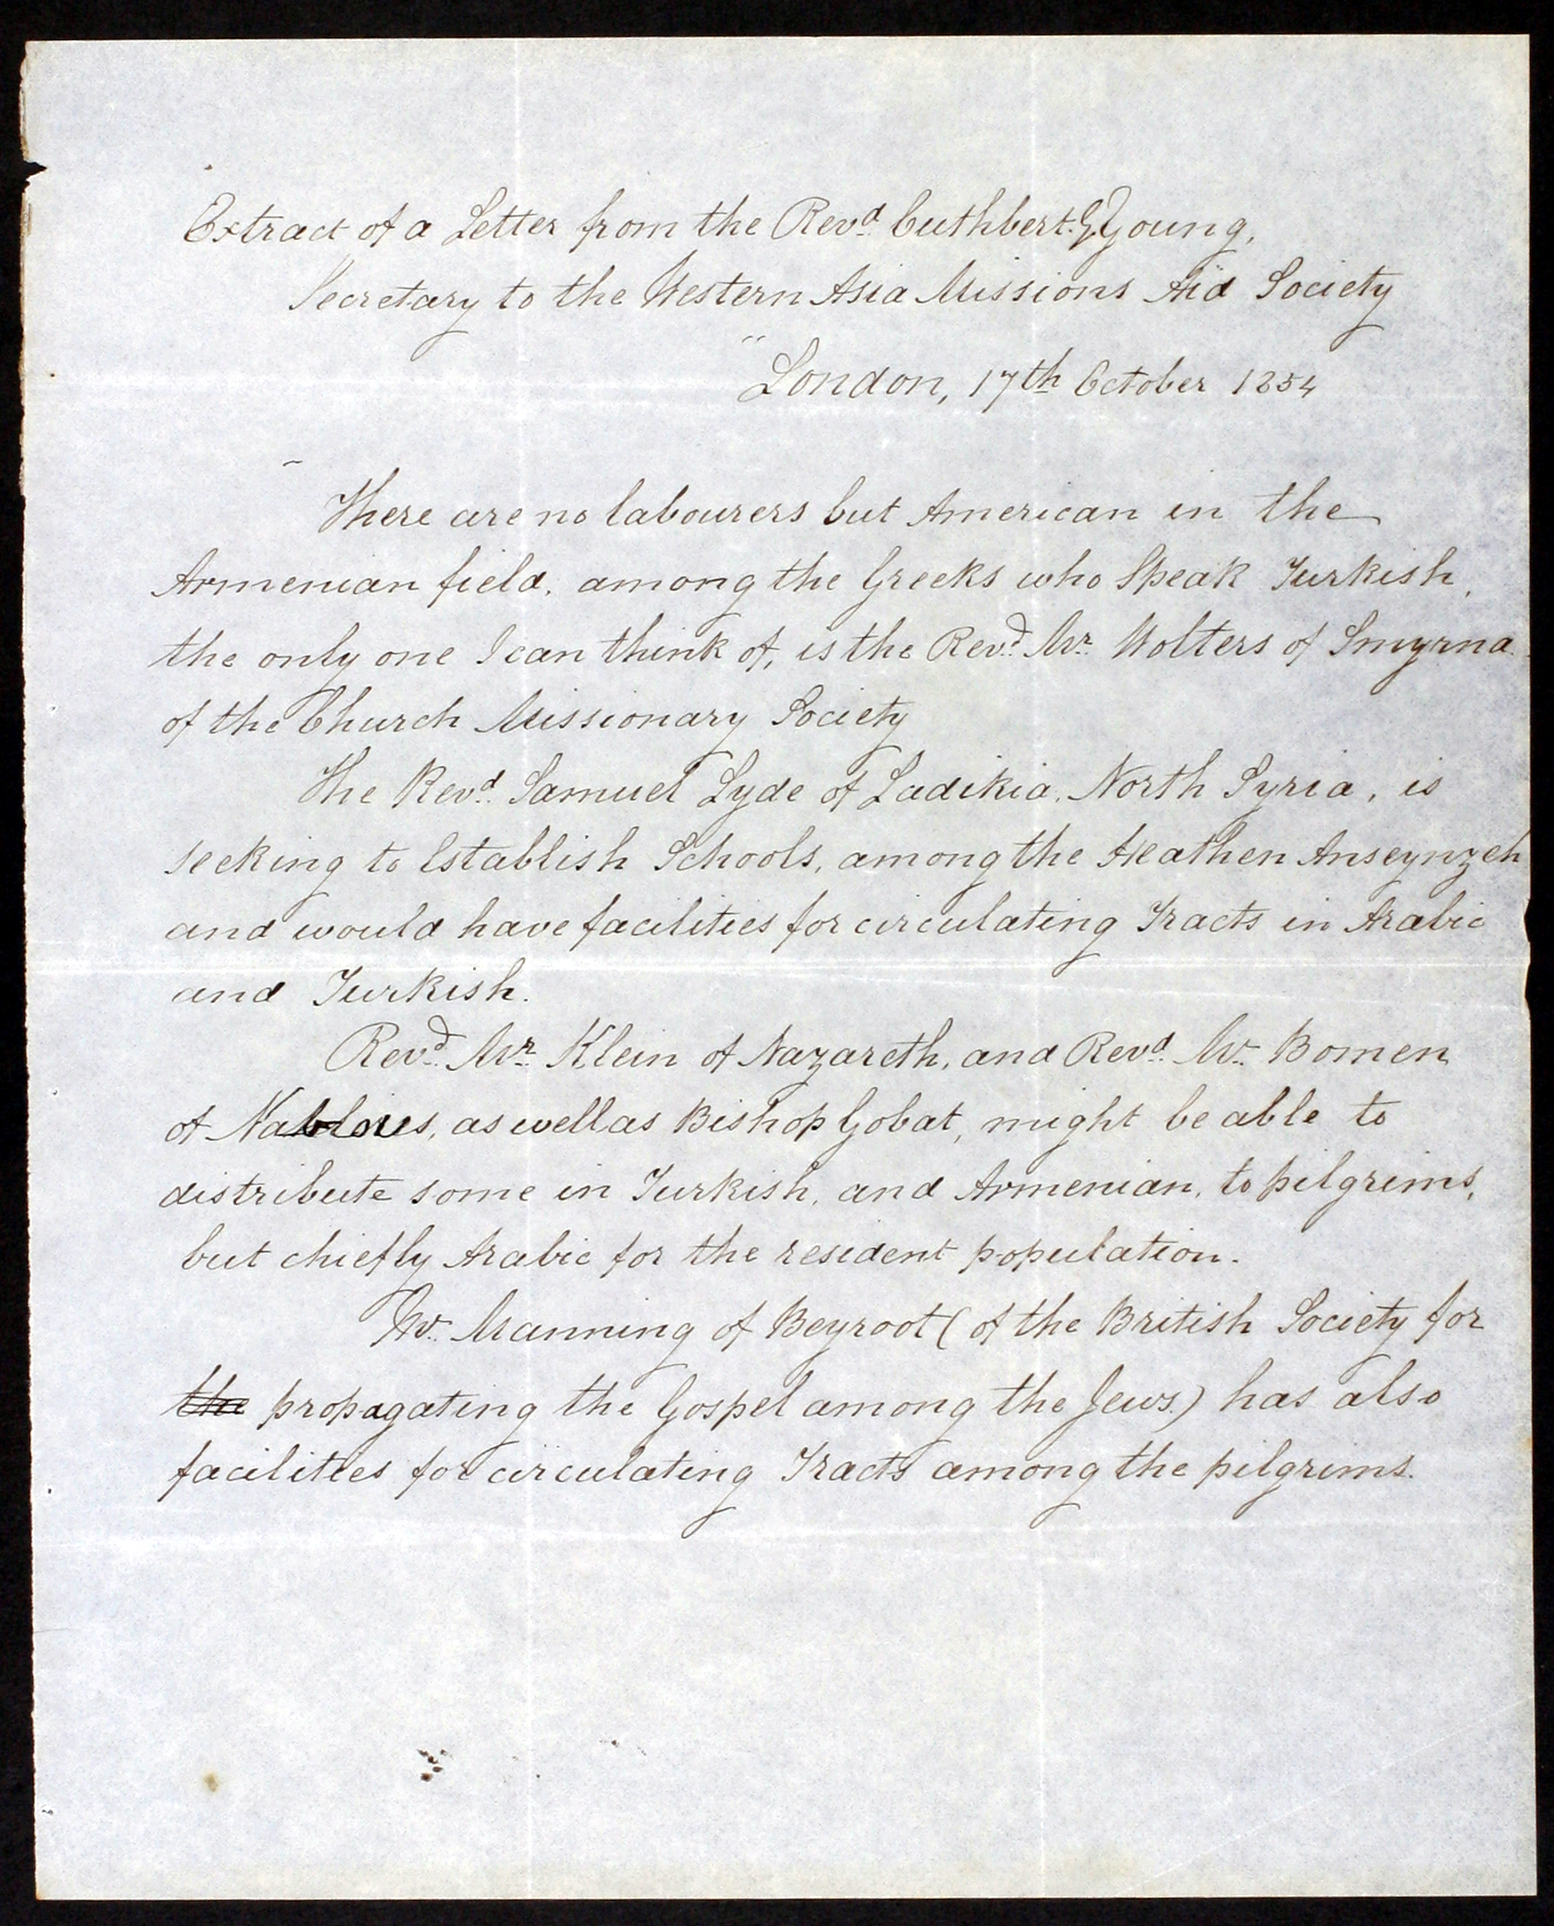 Extract of a Letter from the Revd. Cuthbert. G. Young,
Secretary to the Western Asia Missions Aid Society
"London, 17th October 1854
There are no labourers but American in the
Armenian field, among the Greeks who Speak Turkish,
the only one I can think of, is the Revd. Mr. Wolters of Smyrna
of the Church Missionary Society
The Revd. Samuel Lyde of Ladikia, North Syria, is
seeking to Establish Schools, among the Heathen Anseynzeh
and would have facilities for circulating Tracts in Arabic
and Turkish.
Revd. Mr. Klein of Nazareth, and Revd. Mr. Bomen
of Nablous, as well as Bishop Gobat, might be able to
distribute some in Turkish, and Armenian, to pilgrims,
but chiefly Arabic for the resident population.
Mr. Manning of Beyroot (of the British Society for
the propagating the Gospel among the Jews.) has also
facilities for circulating Tracts among the pilgrims.